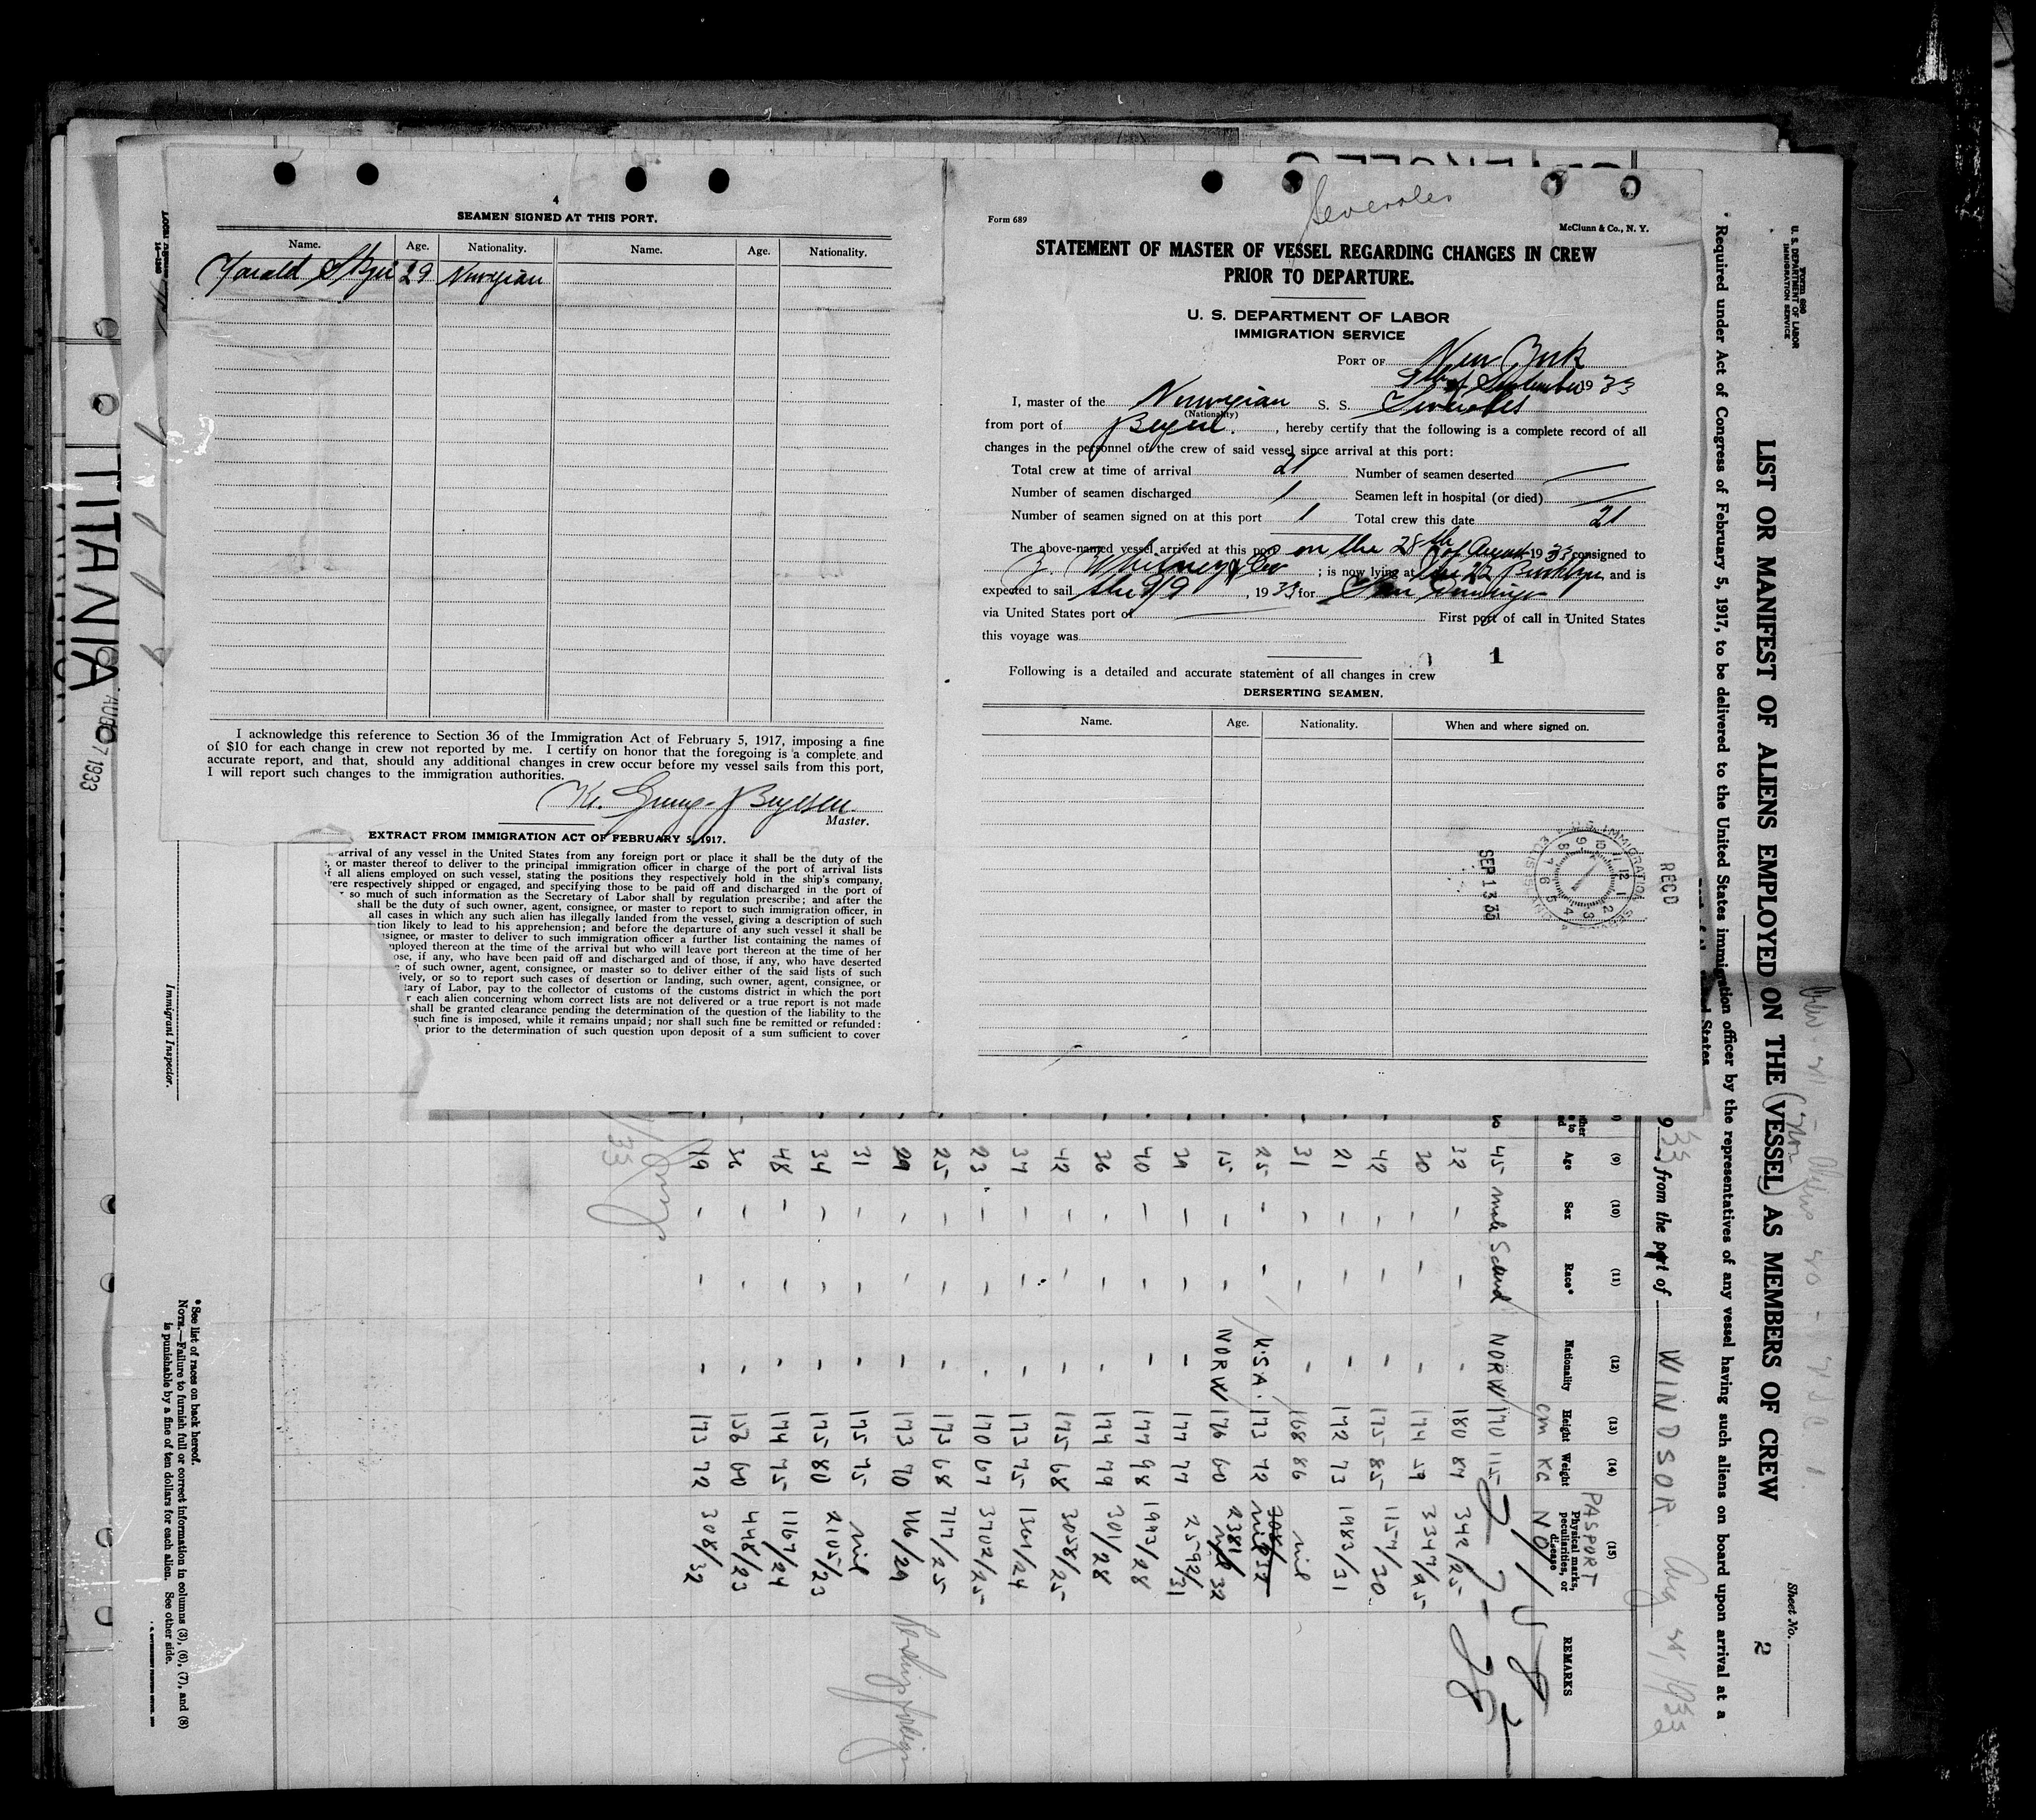 4
SEAMEN SIGNED AT THIS PORT.
Name. Age. Nationality. Name. Age. Nationality.
29 Norwegian
I acknowledge this reference to Section 36 of the Immigration Act of February 5, 1917, imposing a fine
of $10 for each change in crew not reported by me. I certify on honor that the foregoing is a complete and
accurate report, and that, should any additional changes in crew occur before my vessel sails from this port,
I will report such changes to the immigration authorities.
Master.
EXTRACT FROM IMMIGRATION ACT OF FEBRUARY 5, 1917.
arrival of any vessel in the United States from any foreign port or place it shall be the duty of the
or master thereof to deliver to the principal immigration officer in charge of the port of arrival lists
f all aliens employed on such vessel, stating the positions they respectively hold in the ship's company,
vere respectively shipped or engaged, and specifying those to be paid off and discharged in the port of
r so much of such information as the Secretary of Labor shall by regulation prescribe; and after the
shall be the duty of such owner, agent, consignee, or master to report to such immigration officer, in
all cases in which any such alien has illegally landed from the vessel, giving a description of such
tion likely to lead to his apprehension; and before the departure of any such vessel it shall be
nsignee, or master to deliver to such immigration officer a further list containing the names of
mployed thereon at the time of the arrival but who will leave port thereon at the time of her
ose, if any, who have been paid off and discharged and of those, if any, who have deserted
e of such owner, agent, consignee, or master so to deliver either of the said lists of such
ively, or so to report such cases of desertion or landing, such owner, agent, consignee, or
tary of Labor, pay to the collector of customs of the customs district in which the port
r each alien concerning whom correct lists are not delivered or a true report is not made
shall be granted clearance pending the determination of the question of the liability to the
such fine is imposed, while it remains unpaid; nor shall such fine be remitted or refunded:
prior to the determination of such question upon deposit of a sum sufficient to cover
Form 689
McClunn & Co., N. Y.
STATEMENT OF MASTER OF VESSEL REGARDING CHANGES IN CREW
PRIOR TO DEPARTURE.
U. S. DEPARTMENT OF LABOR
IMMIGRATION SERVICE
PORT OF New York
of September 1933
I, master of the Norwegian S. S.
(Nationality)
from port of , hereby certify that the following is a complete record of all
changes in the personnel of the crew of said vessel since arrival at this port:
Total crew at time of arrival 21 Number of seamen deserted —
Number of seamen discharged 1 Seamen left in hospital (or died) —
Number of seamen signed on at this port 1 Total crew this date 21
The above-named vessel arrived at this port on the 28th of August 1933 consigned to
Whitney & Co ; is now lying at 22 Brooklyn and is
expected to sail the 9/9, 1933, for San Domingo
via United States port of — First port of call in United States
this voyage was
1
Following is a detailed and accurate statement of all changes in crew
DERSERTING SEAMEN.
Name. Age. Nationality. When and where signed on.
SEP 13 33
U.S. IMMIGRATION SERVICE
ELLIS ISLAND
RECD
TITANIA
AUG 7 1933
Immigrant Inspector.
Form 689
U. S. DEPARTMENT OF LABOR
IMMIGRATION SERVICE
Sheet No.
2
LIST OR MANIFEST OF ALIENS EMPLOYED ON THE VESSEL AS MEMBERS OF CREW
Required under Act of Congress of February 5, 1917, to be delivered to the United States immigration officer by the representatives of any vessel having such aliens on board upon arrival at a
933, from the port of WINDSOR.
(9) (10) (11) (12) (13) (14) (15)
Age Sex Race* Nationality Height Weight Physical marks, peculiarities, or disease REMARKS
cm KG PASPORT NO
45 male Scand NORW 170 115
32 - - - 180 84 342/25
30 - - - 174 59 3347/25
42 - - - 175 85 1157/30
21 - - - 172 73 1983/31
31 - - - 168 86 nil
25 - - U.S.A. 173 72
15 - - NORW 176 60 2381/32
29 - - - 177 77 2592/31
40 - - - 177 98 1993/28
26 - - - 174 79 301/28
42 - - - 175 68 3058/25
34 - - - 173 75 1301/24
23 - - - 170 67 3702/25
25 - - - 173 68 717/25
29 - - - 173 70 116/29
31 - - - 175 75 nil
34 - - - 175 80 2105/23
48 - - - 174 75 1167/24
36 - - - 156 60 448/23
49 - - - 173 72 308/32
* See list of races on back hereof.
NOTE.—Failure to furnish full or correct information in columns (3), (6), (7), and (8)
is punishable by a fine of ten dollars for each alien. See other side.